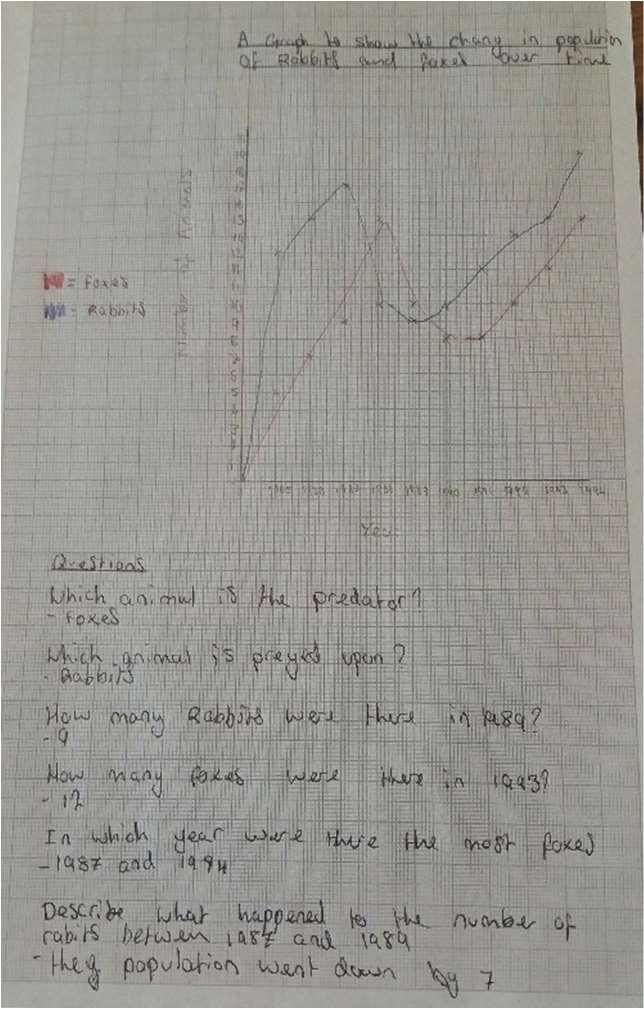 A Graph to show the chang in population
of Rabbits and foxes over time
Number of Animals
= Foxes
= Rabbits
1994
Year
Questions
Which animal is the predator?
- Foxes
Which animal is preyed upon?
- Rabbits
How many Rabbits were there in 1989?
- 9
How many foxes were there in 1993?
- 12
In which year were there the most foxes
- 1987 and 1994
Describe what happened to the number of
rabits betwen 1987 and 1989
- they population went down by 7